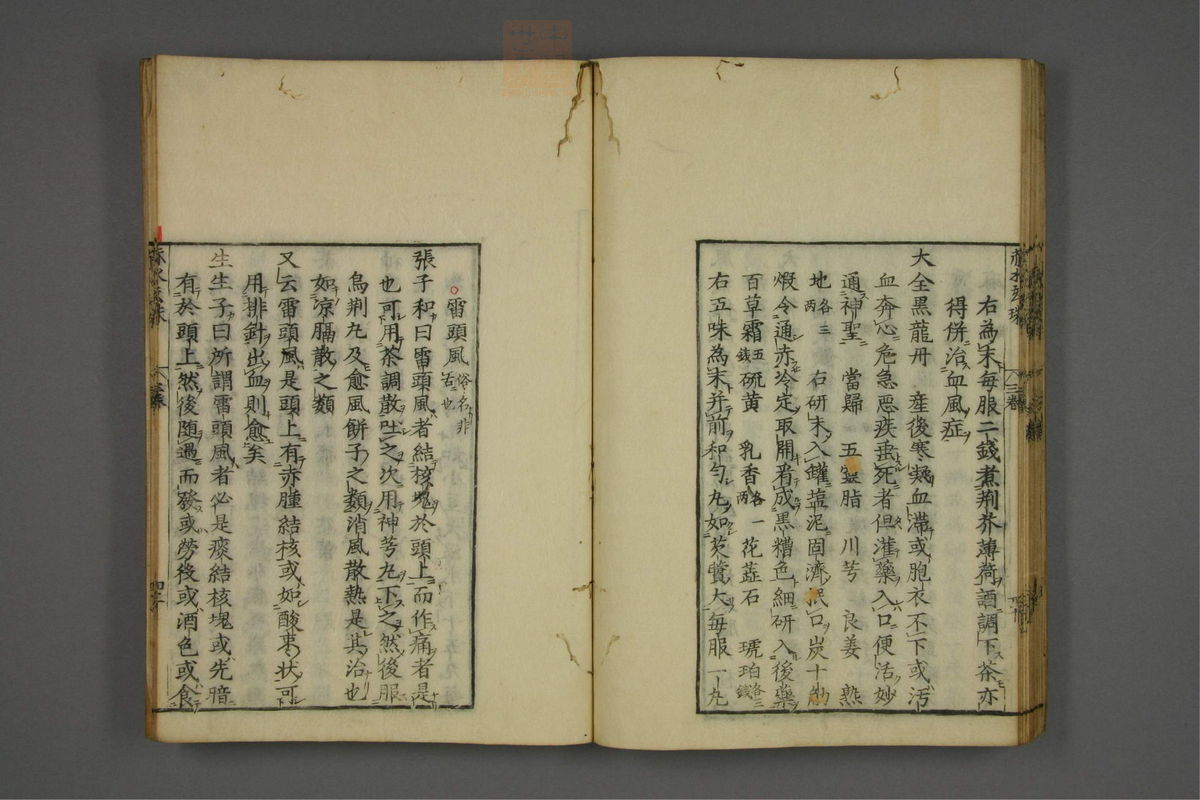 右為末每服二錢煮荆芥薄荷酒調下茶亦
得併治血風症
大全黑龍丹　産後寒凝血滯或胞衣不下或汚
血奔心危急惡疾垂死者但灌藥入口便活妙
通神聖　當歸　五靈脂　川芎　良姜　熟
地各三兩　右研末入罐塩泥固濟泥口炭十觔
煆令通赤冷定取開看成黒糟色細研入後藥
百草霜五錢　硫黄　乳香各一兩　花蕋石　琥珀各三錢
右五味為末并前和勻丸如芡實大每服一丸
雷頭風俗名非舌也
張子和曰雷頭風者結核塊於頭上而作痛者是
也可用茶調散吐之次用神芎丸下之然後服
烏荆丸及愈風餅子之類消風散熱是其治也
如凉膈散之類
又云雷頭風是頭上有赤腫結核或如酸棗状可
用排針出血則愈矣
生生子曰所謂雷頭風者必是痰結核塊或先暗
有於頭上然後随過而發或勞後或酒色或食
赤水玄珠　三卷